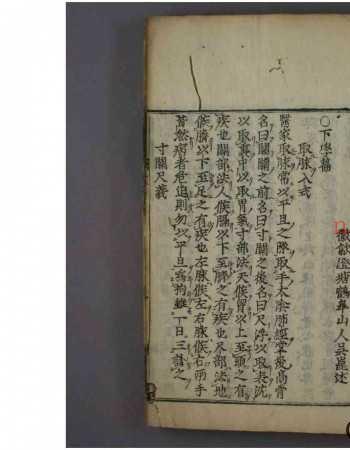 ○下學篇
徽歙澄塘鶴皐山人吳崑述
取脉入式
醫家取脉常以平旦之際取手太陰肺經掌後高骨
名曰關關之前名曰寸關之後名曰尺浮以取表沉
以取裏中以取胃氣寸部法天候胃以上至頭之有
疾也關部法人候膈以下至臍之有疾也尺部法地
候臍以下至足之有疾也左脉候左右脉候右兩手
皆然病者危迫則勿以平旦爲拘雖一日三診之
寸關尺義